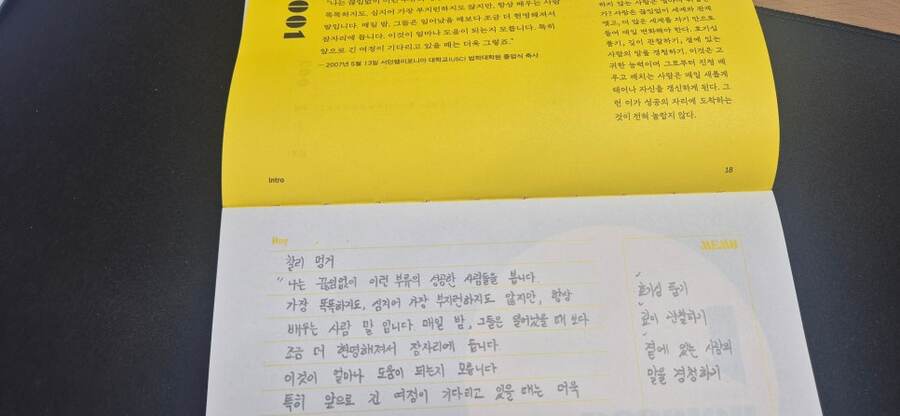 001
똑똑하지도, 심지어 가장 부지런하지도 않지만, 항상 배우는 사람
말입니다. 매일 밤, 그들은 일어났을 때보다 조금 더 현명해져서
잠자리에 듭니다. 이것이 얼마나 도움이 되는지 모릅니다. 특히
앞으로 긴 여정이 기다리고 있을 때는 더욱 그렇죠."
— 2007년 5월 13일 서던캘리포니아 대학교(USC) 법학대학원 졸업식 축사
Intro
가? 사람은 끊임없이 세계와 관계
맺고, 더 많은 세계를 자기 안으로
들여 매일 변화해야 한다. 호기심
품기, 깊이 관찰하기, 곁에 있는
사람의 말을 경청하기. 이것은 고
귀한 능력이며 그로부터 진정 배
우고 깨치는 사람은 매일 새롭게
태어나 자신을 갱신하게 된다. 그
런 이가 성공의 자리에 도착하는
것이 전혀 놀랍지 않다.
18
찰리 멍거
"나는 끊임없이 이런 부류의 성공한 사람들을 봅니다.
가장 똑똑하지도, 심지어 가장 부지런하지도 않지만, 항상
배우는 사람 말 입니다 매일 밤, 그들은 일어났을 때 보다
조금 더 현명해져서 잠자리에 듭니다.
이것이 얼마나 도움이 되는지 모릅니다
특히 앞으로 긴 여정이 기다리고 있을 때는 더욱
호기심 품기
깊이 관찰하기
곁에 있는 사람의
말을 경청하기